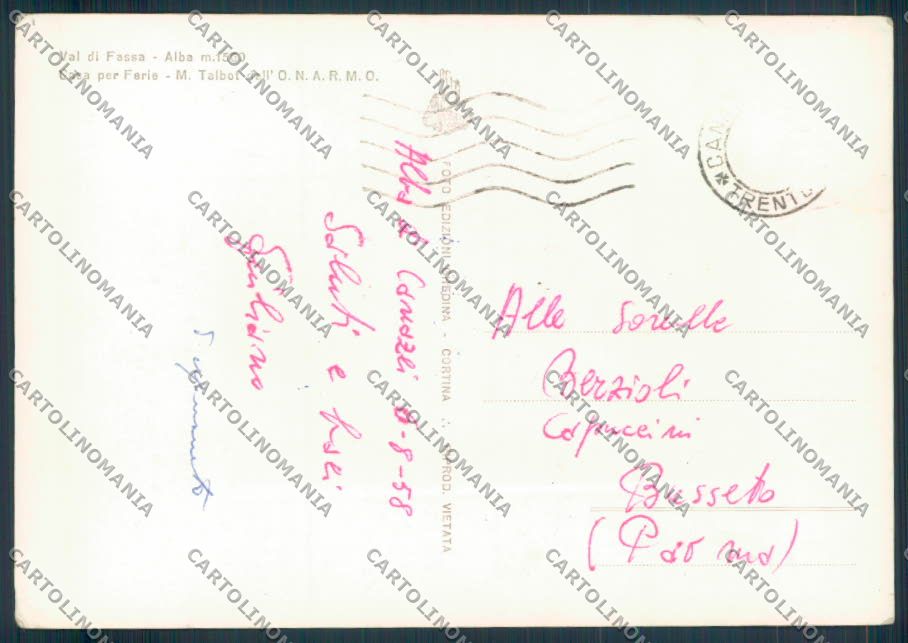 Val di Fassa - Alba m.1500
Casa per Ferie - M. Talbot dell' O.N.A.R.M.O.
Alba di Canazei -8-58
Saluti e baci
Giuliano
FOTO EDIZIONI GHEDINA - CORTINA - RIPROD. VIETATA
TRENTO
Alle Sorelle
Berzioli
Cappuccini
Busseto
(Parma)
CARTOLINOMANIA